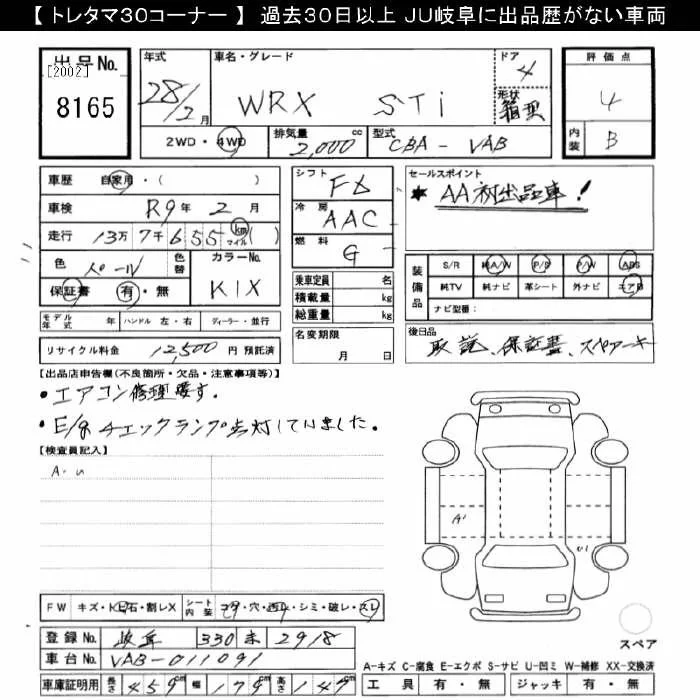 【 トレタマ30コーナー 】 過去30日以上 JU岐阜に出品歴がない車両
出品No. [2002] 8165
年式 28/2月
車名・グレード WRX STi
ドア 4
形状 箱型
評価点 4
内装 B
2WD・4WD 排気量 2,000 cc 型式 CBA-VAB
車歴 自家用・( )
車検 R9年2月
走行 13万7千655 km マイル ( )
色 パール 色替 カラーNo. K1X
保証書 有・無
シフト F6
冷房 AAC
燃料 G
乗車定員 名
積載量 kg
総重量 kg
名変期限 月 日
セールスポイント
★ AA初出品車!
装備品 S/R 純A/W P/S P/W ABS
純TV 純ナビ 革シート 外ナビ エアB
ナビ型番:
モデル年式 年 ハンドル 左・右 ディーラー・並行
リサイクル料金 12,500 円 預託済
後日品
取説、保証書、スペアキー
【出品店申告欄(不良箇所・欠品・注意事項等)】
・エアコン修理要す。
・E/gチェックランプ点灯していました。
【検査員記入】
A・U
A1
U1
FW キズ・ 石・割レX シート内装 コゲ・穴・ ・シミ・破レ・スレ
登録No. 岐阜 330 2918
車台No. VAB-011091
車庫証明用 長さ 459 cm 幅 179 cm 高さ 147 cm
スペア
A-キズ C-腐食 E-エクボ S-サビ U-凹ミ W-補修 XX-交換済
工具 有・無 ジャッキ 有・無